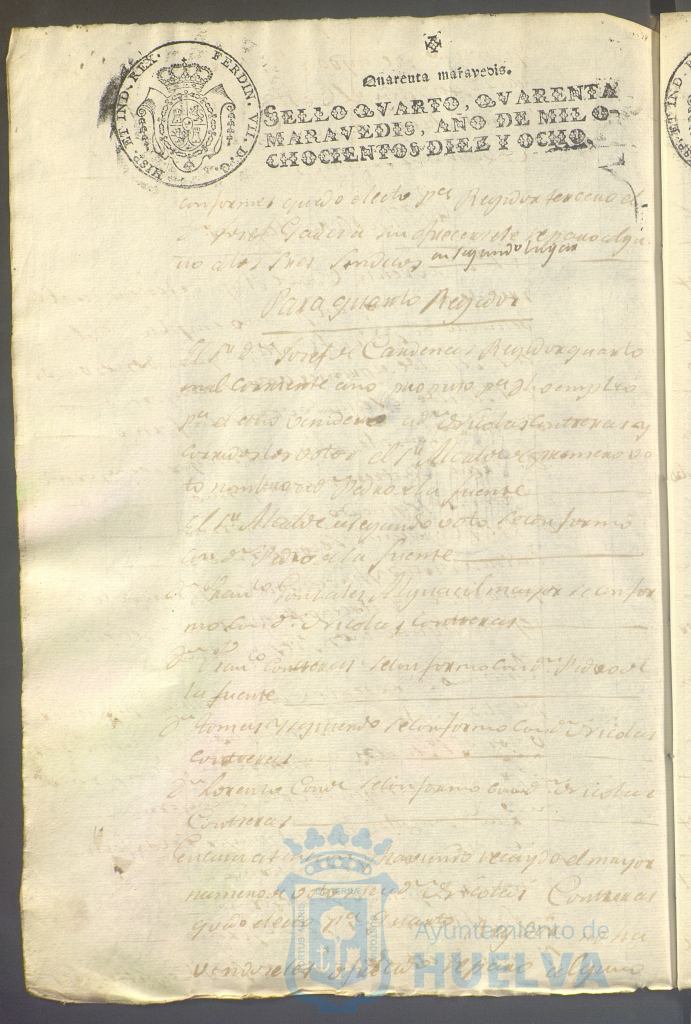 HISP. ET IND. REX. FERDIN. VII. D. G.
Quarenta maravedis.
SELLO QVARTO, QVARENTA
MARAVEDIS, AÑO DE MIL O
CHOCIENTOS DIEZ Y OCHO.
conformes quedo electo pª Regidor tercero el
Josef Garcia sin ofrecersele reparo algu
no a los Sres Sindicos en segundo lugar
Para quarto Regidor
El Sr Dn Josef de Cardenas Regidor quarto
en el corriente año propuso pª dho empleo
pª el año venidero a dn Nicolas Contreras y
corridos los votos el Sr Alcalde de primero vo
to nombro a dn Pedro de la fuente
El Sr Alcalde de segundo voto se conformo
con dn Pedro de la fuente
dn Franco Gonzales Alguacil mayor se confor
mo con dn Nicolas Contreras
dn Franco Contreras se conformo con dn Pedro de
la fuente
dn tomas Yzquierdo se conformo con dn Nicolas
Contreras
dn Lorenzo Conde se conformo con dn Nicolas
Contreras
haviendo recaydo el mayor
numero de votos en dn Nicolas Contreras
quedo electo pª quarto
reparo alguno
Ayuntamiento de
HUELVA